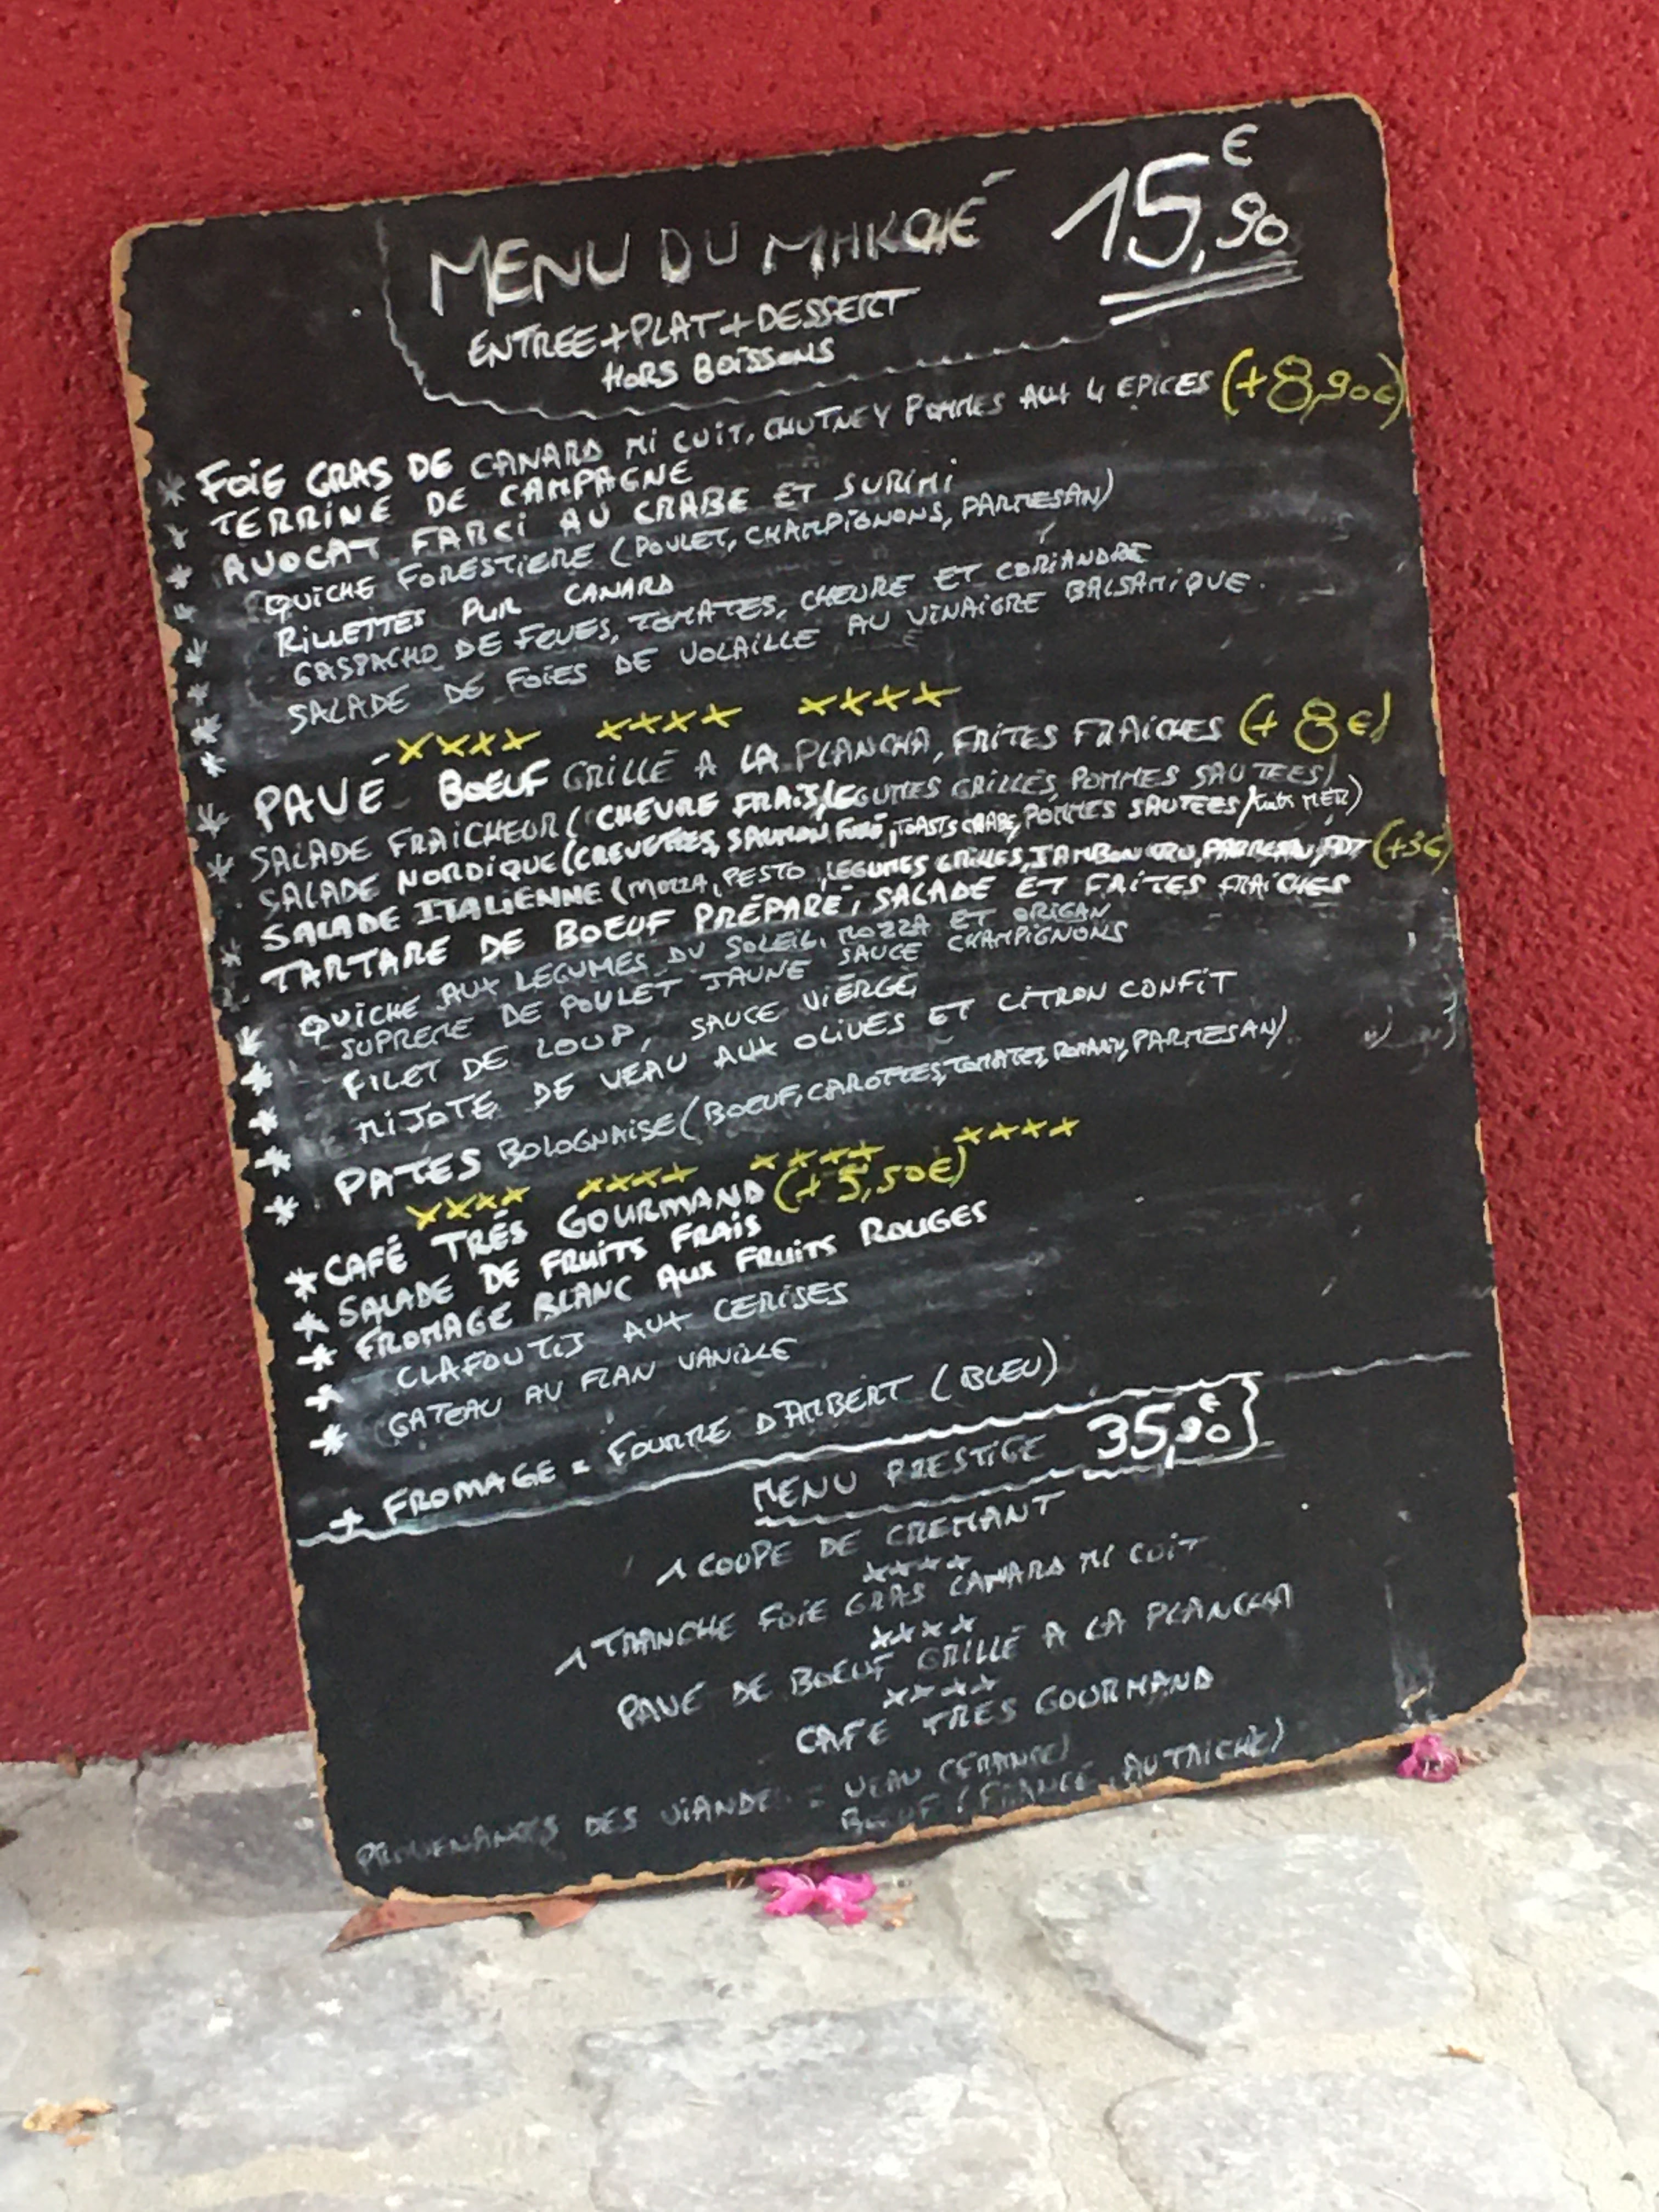 MENU DU MARCHÉ 15,90€
ENTREE+PLAT+DESSERT
HORS BOISSONS
* FOIE GRAS DE CANARD MI CUIT, CHUTNEY POMMES AUX 4 EPICES (+8,90€)
* TERRINE DE CAMPAGNE
* AVOCAT FARCI AU CRABE ET SURIMI
* QUICHE FORESTIERE (POULET, CHAMPIGNONS, PARMESAN)
* RILLETTES PUR CANARD
* GASPACHO DE FEVES, TOMATES, CHEVRE ET CORIANDRE
* SALADE DE FOIES DE VOLAILLE AU VINAIGRE BALSAMIQUE.
*
-XXXX XXXX XXXX
* PAVÉ BOEUF GRILLÉ A LA PLANCHA, FRITES FRAICHES (+8€)
* SALADE FRAICHEUR (CHEVRE FRAIS, LEGUMES GRILLÉS, POMMES SAUTEES)
SALADE NORDIQUE (CREVETTES, SAUMON FUMÉ, TOASTS CRABE, POMMES SAUTEES, MER)
* SALADE ITALIENNE (MOZZA, PESTO, LEGUMES GRILLÉS, JAMBON CRU, PARMESAN, PDT (+3€)
* TARTARE DE BOEUF PRÉPARÉ, SALADE ET FRITES FRAICHES
* QUICHE AUX LEGUMES DU SOLEIL, MOZZA ET ORIGAN
* SUPREME DE POULET JAUNE SAUCE CHAMPIGNONS
* FILET DE LOUP, SAUCE VIERGE
* MIJOTÉ DE VEAU AUX OLIVES ET CITRON CONFIT
* PATES BOLOGNAISE (BOEUF, CAROTTES, TOMATES, ROMARIN, PARMESAN)
XXXX XXXX XXXX XXXX
* CAFÉ TRÉS GOURMAND (+5,50€)
* SALADE DE FRUITS FRAIS
* FROMAGE BLANC AUX FRUITS ROUGES
* CLAFOUTIS AUX CERISES
* GATEAU AU FLAN VANILLE
+ FROMAGE = FOURME D'AMBERT (BLEU)
MENU PRESTIGE 35,90€
1 COUPE DE CREMANT
XXXX
1 TRANCHE FOIE GRAS CANARD MI CUIT
XXXX
PAVÉ DE BOEUF GRILLÉ A LA PLANCHA
XXXX
CAFE TRES GOURMAND
PROVENANCES DES VIANDES = VEAU (FRANCE)
BOEUF (FRANCE, AUTRICHE)